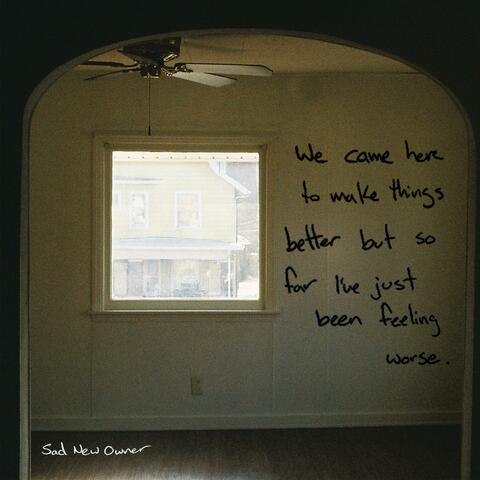 We came here
to make things
better but so
far I've just
been feeling
worse.
Sad New Owner